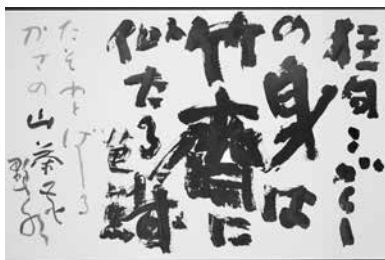 狂句こがらし
の身は
竹斎に
似たる哉
芭蕉
たそやとばしる
かさの山茶花
野水